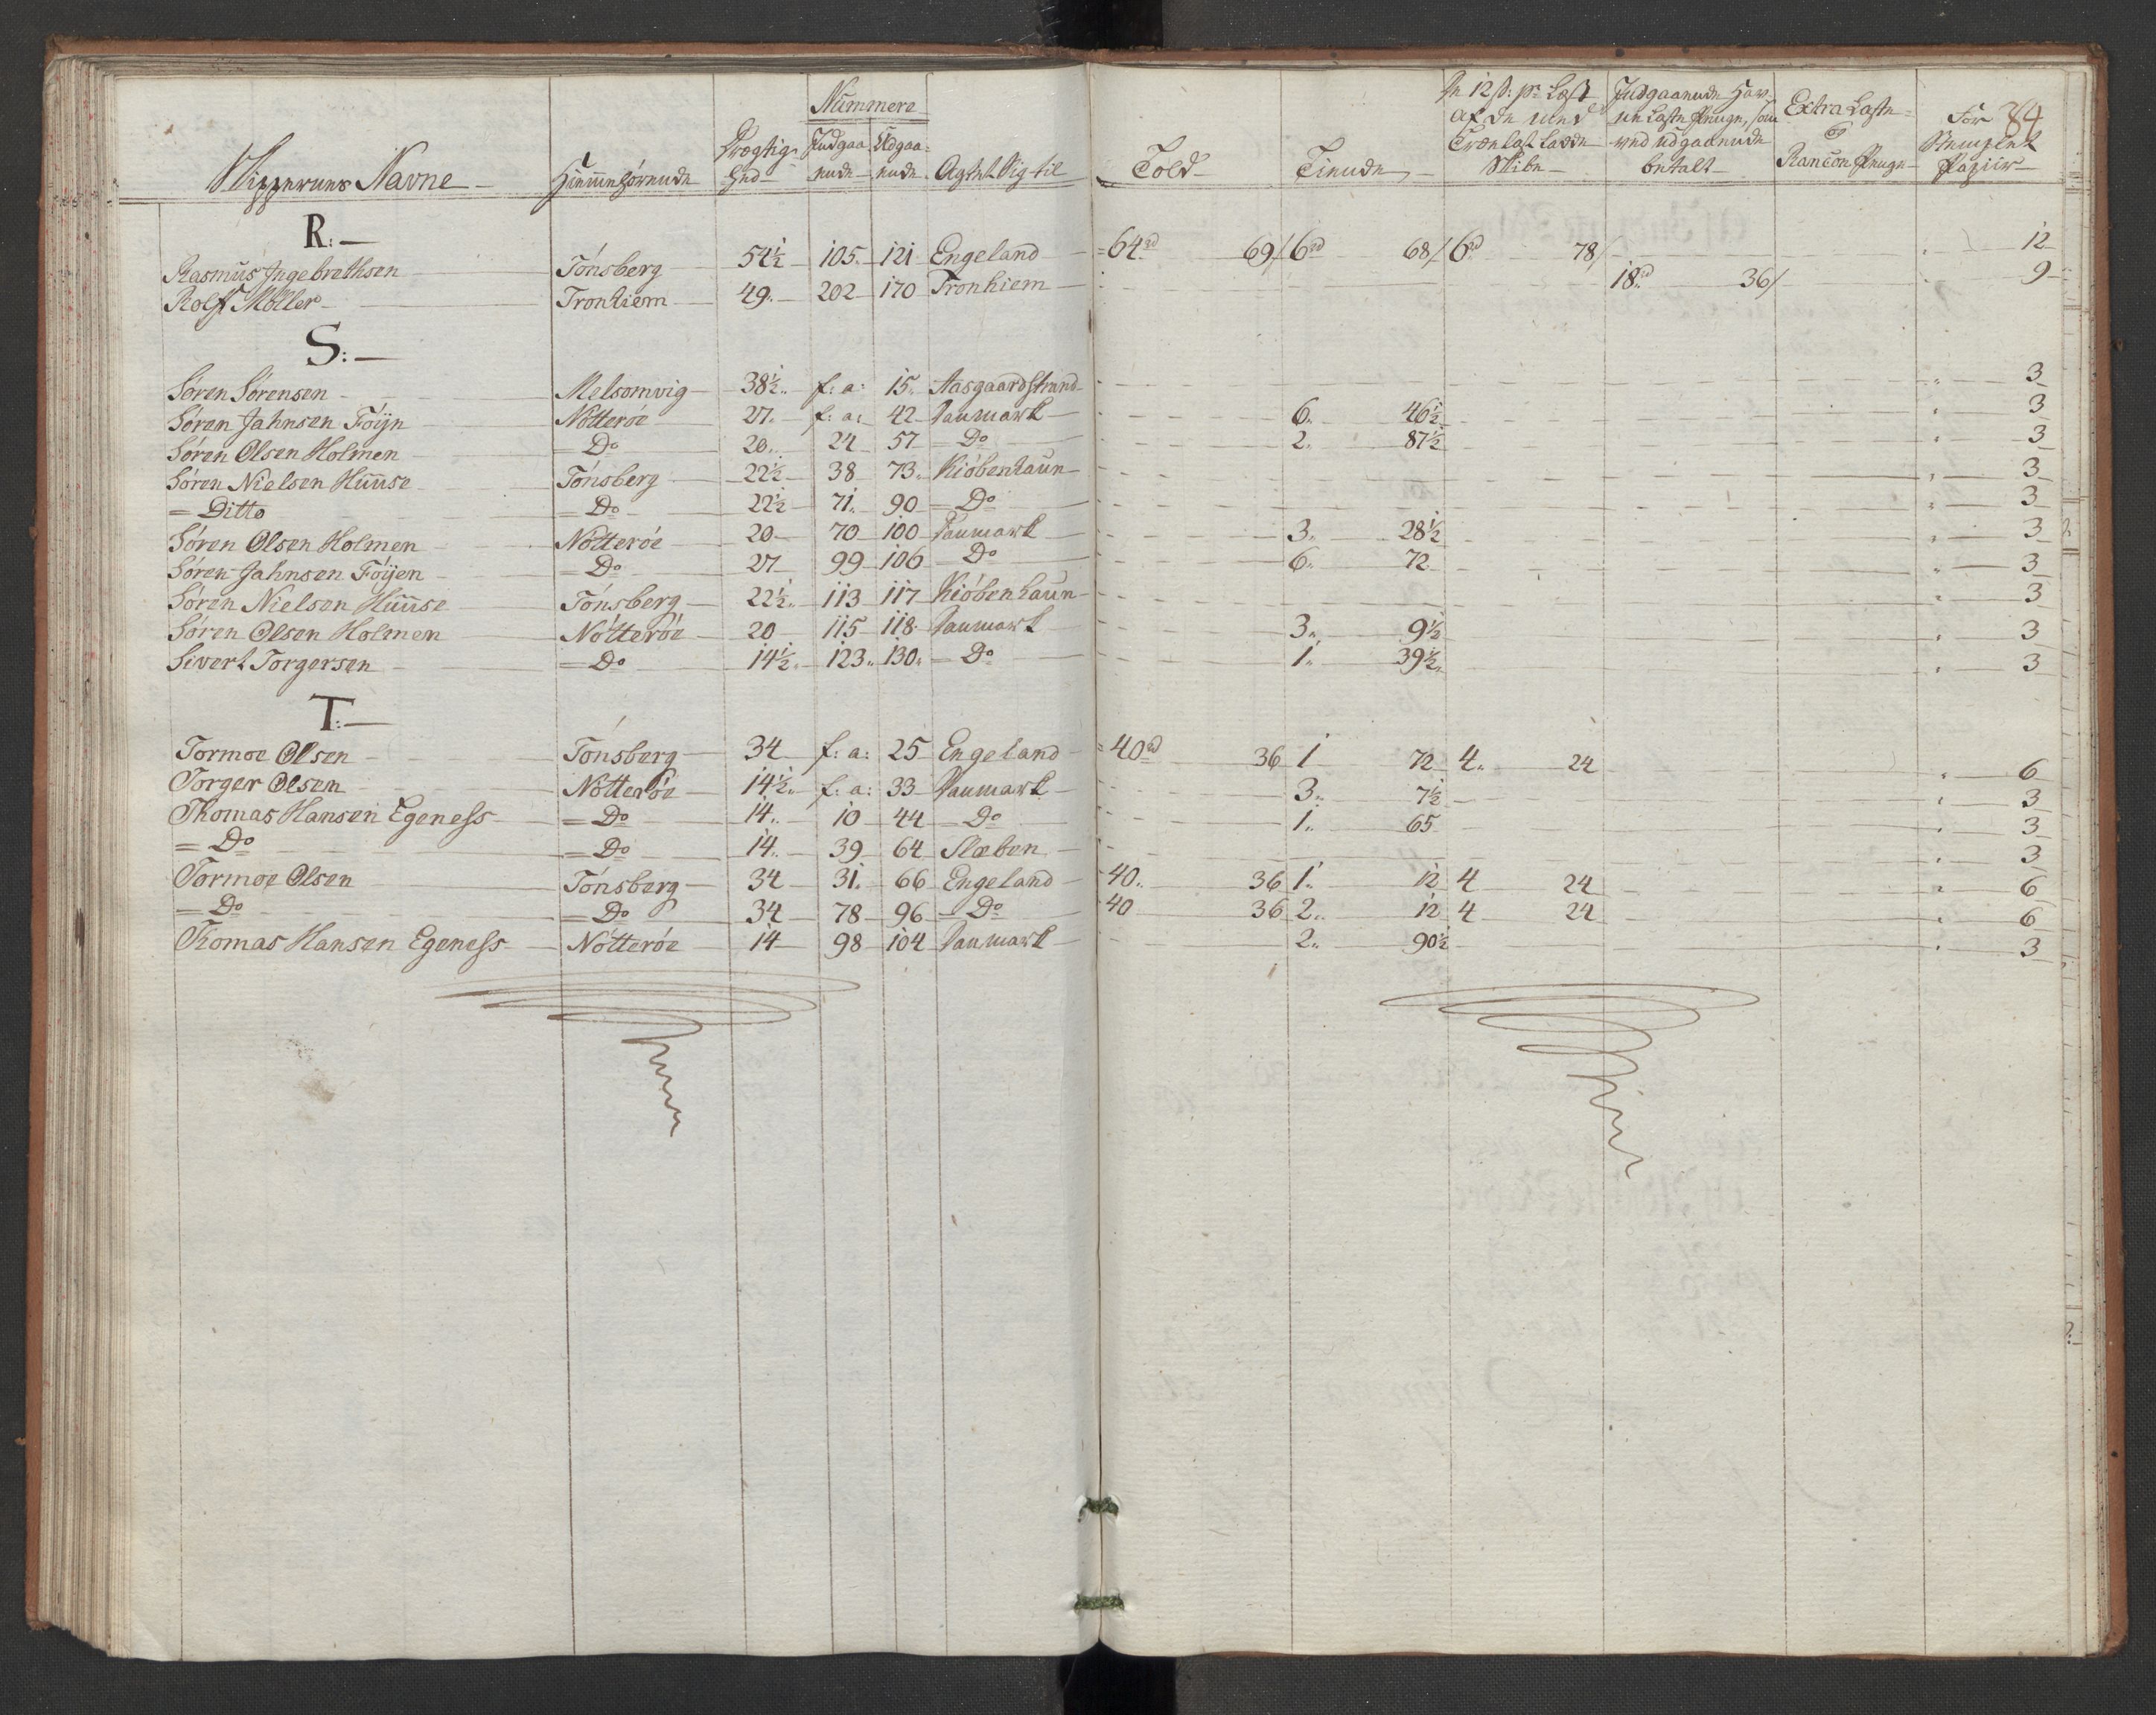 Skippernes Navne — Hiemmehörende — Drægtig-hed — Nummere Indgaa-ende — Udgaa-ende — Agtet Sig til — Told — Tiende — De 12 s. pr. Læst af de med Trælast ladde Skibe — Indgaaende Hav-ne Laste Penge, som ved udgaaende betalt — Extra Laste og Rancon Penge — For Stemplet Papiir — 84
R:—
Rasmus Ingebrethsen — Tönsberg — 54½ — 105 — 121 — Engeland — =64rd 69/ 6rd 68/ 6rd 78/ — 12
Rolf Möller — Tronhiem — 49. — 202 — 170 — Tronhiem — 18rd 36/ — 9
S:—
Sören Sörensen — Melsomvig — 38½ — f: a: 15. Aasgaardstrand — 3
Sören Jahnsen Föijn — Nötteröe — 27. — f: a: 42 Danmark — 6. 46½ — 3
Sören Olsen Holmen — =Do — 20. — 24 — 57 — =Do — 2. 87½ — 3
Sören Nielsen Huuse — Tönsberg — 22½ — 38 — 73. Kiöbenhaun — 3
=Ditto — =Do — 22½ — 71. — 90 — =Do — 3
Sören Olsen Holmen — Nötteröe — 20 — 70 — 100 Danmark — 3. 28½ — 3
Sören Jahnsen Föijen — =Do — 27 — 99 — 106 — =Do — 6. 72 — 3
Sören Nielsen Huuse — Tönsberg — 22½ — 113 — 117 Kiöbenhaun — 3
Sören Olsen Holmen — Nötteröe — 20 — 115 — 118. Danmark — 3. 9½ — 3
Sivert Torgersen — =Do — 14½ — 123. — 130. — =Do — 1. 39½ — 3
T:—
Tormoe Olsen — Tönsberg — 34 — f: a: 25 Engeland — =40rd 36 1 72 4. 24 — 6
Torger Olsen — Nötteröe — 14½ — f: a: 33 Danmark — 3. 7½ — 3
Thomas Hansen Egeness — =Do — 14. — 10 — 44 — =Do — 1. 65 — 3
=Do — =Do — 14. — 39 — 64 Slæben — 3
Tormoe Olsen — Tönsberg — 34 — 31. — 66 Engeland — 40. 36 1. 12 4 24 — 6
=Do — =Do — 34 — 78 — 96 — =Do — 40 36 2. 12 4 24 — 6
Thomas Hansen Egeness — Nötteröe — 14 — 98 — 104 Danmark — 2. 90½ — 3